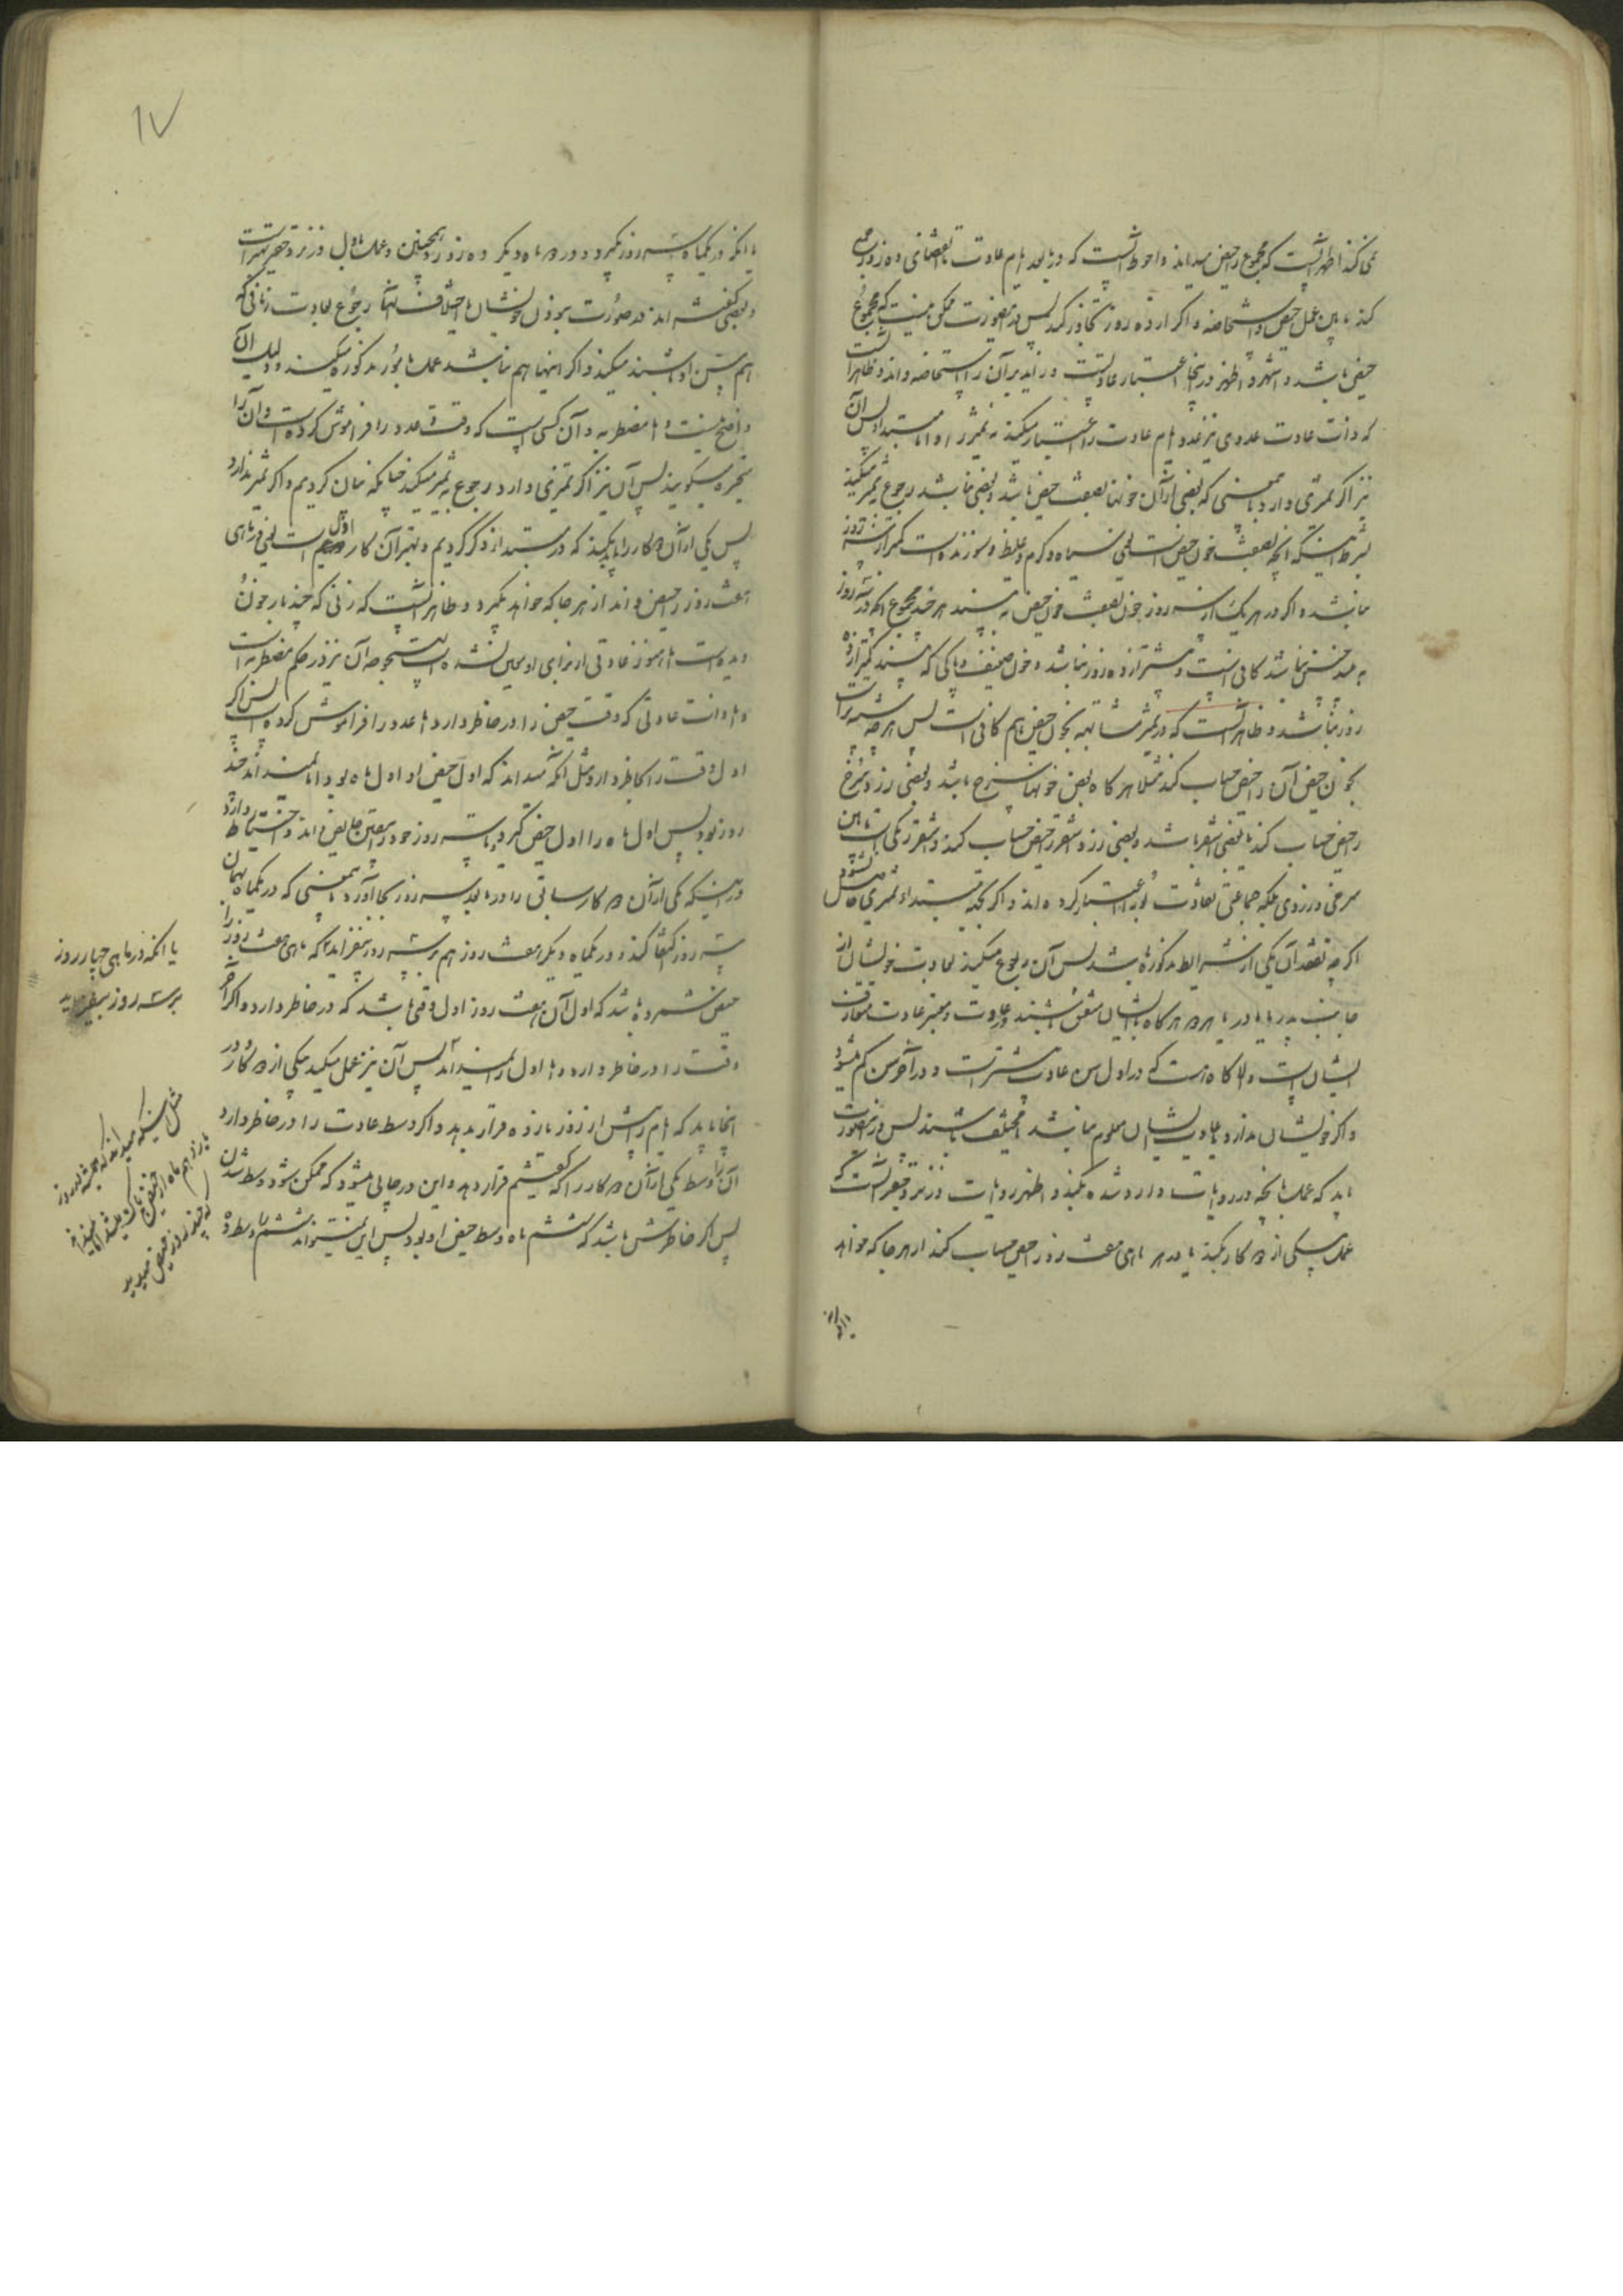 نمیکند اظهر آنست که مجموع را حیض میداند و احوط آنست که در ما بعد ایام عادت تا انقضای ده روز جمع
کند مابین عمل حیض و استحاضه و اگر از ده روز تجاوز کند پس در اینصورت ممکن نیست که مجموع
حیض باشد و اشهر و اظهر در اینجا اعتبار عادتست و زاید بر آن را استحاضه داند و ظاهر آنست
که ذات عادت عددی نیز عدد ایام عادت را اعتبار میکند نه تمیز را و اما مبتدئه پس آن
نیز اگر تمیزی دارد بمعنی که بعضی از آن خونها بصفت حیض باشد و بعضی نباشد رجوع بتمیز میکند
بشرط اینکه آنچه بصفت خون حیض است یعنی سیاه و گرم و غلیظ و سوزنده است کمتر از سه روز
نباشد و اگر در هر یک از سه روز خون بصفت خون حیض نه بیند هر چند مجموع آنکه در سه روز
به بیند کافی نیست و بیشتر از ده روز نباشد و خون ضعیف و پاکی که می بیند کمتر از ده
روز نباشد و ظاهر آنست که در تمیز مشابهت بخون حیض هم کافی است پس هر چه شبیه تر است
بخون حیض آن را حیض حساب کند مثلا هر گاه بعض خونها سرخ باشد و بعضی زرد سرخ
را حیض حساب کند یا بعضی اشقر باشد و بعضی زرد اشقر را حیض حساب کند و اشقر رنگی است مابین
سرخی و زردی بلکه جماعتی تفاوت بو را اعتبار کرده اند و اگر بجهت مبتدئه تمیزی حاصل نشود
اگر چه بفقدان یکی از شرایط مذکوره باشد پس آن رجوع میکند بعادت خویشان از
جانب پدر یا مادر یا هر دو هر گاه ایشان متفق باشند در عادت و معتبر عادت متعارف
ایشان است والا گاه هست که در اول سن عادت بیشتر است و در آخر سن کم میشود
و اگر خویشان ندارد یا عادت ایشان معلوم نباشد یا مختلف باشند پس در اینصورت
باید که عمل بآنچه در روایات وارد شده بکند و اظهر روایات در نزد حقیر آنست که
عمل بیکی از دو کار بکند یا در هر ماهی هفت روز را حیض حساب کند از هر جا که خواهد
۱۷
یا آنکه در یکماه سه روز بگیرد و در ماه دیگر ده روز و همچنین و عمل باول در نزد حقیر بهتر است
و بعضی گفته اند در صورت بودن خویشان یا اختلاف آنها رجوع بعادت زنانی که
هم سن او باشند میکند و اگر اینها هم نباشند عمل بامور مذکوره میکند و دلیل آن
واضح نیست و اما مضطربه و آن کسی است که وقت و عدد را فراموش کرده است و آن را
متحیره میگویند پس آن نیز اگر تمیزی دارد رجوع به تمیز میکند چنانکه بیان کردیم و اگر تمیز ندارد
پس یکی از آن دو کار را بکند که در مبتدئه ذکر کردیم و بهتر آن کار اول است یعنی در ماهی
هفت روز را حیض داند از هر جا که خواهد بگیرد و ظاهر آنست که زنی که چند بار خون
دیده است اما هنوز عادتی از برای او حاصل نشده است نیز در حکم مضطربه است
و اما ذات عادتی که وقت حیض را در خاطر دارد اما عدد را فراموش کرده است پس اگر
اول وقت را بخاطر دارد مثل آنکه میداند که اول حیض او اول ماه بود اما نمیداند چند
روز بود پس اول ماه را اول حیض گیرد و تا سه روز خود را بیقین حایض داند و احتیاط دارد
در اینکه یکی از آن دو کار سابق را در ما بعد سه روز بجا آورد بمعنی که در یکماه بهمان
سه روز اکتفا کند و در یکماه دیگر هفت روز هم بر سه روز بیفزاید یا آنکه ماهی هفت روز را
حیض شمرد و باشد که اول آن هفت روز اول وقتی باشد که در خاطر دارد و اگر آخر
وقت را در خاطر دارد و اما اول را نمیداند پس آن نیز عمل میکند بیکی از دو کار و در
اینجا باید که ایام را پیش از روز یازده قرار بدهد و اگر وسط عادت را در خاطر دارد
آن را وسط یکی از آن دو کار را که گفتیم قرار دهد و این در جایی میشود که ممکن شود وسط شدن
پس اگر خاطرش باشد که ششم ماه وسط حیض او بود پس این نمیتواند ششم را وسط ده
یا آنکه در ماهی چهار روز
بر سه روز بیفزاید
مثل اینکه میداند که همیشه در روز
یازدهم ماه از حیض پاک میشد اما نمیداند
که چند روز حیض میدید